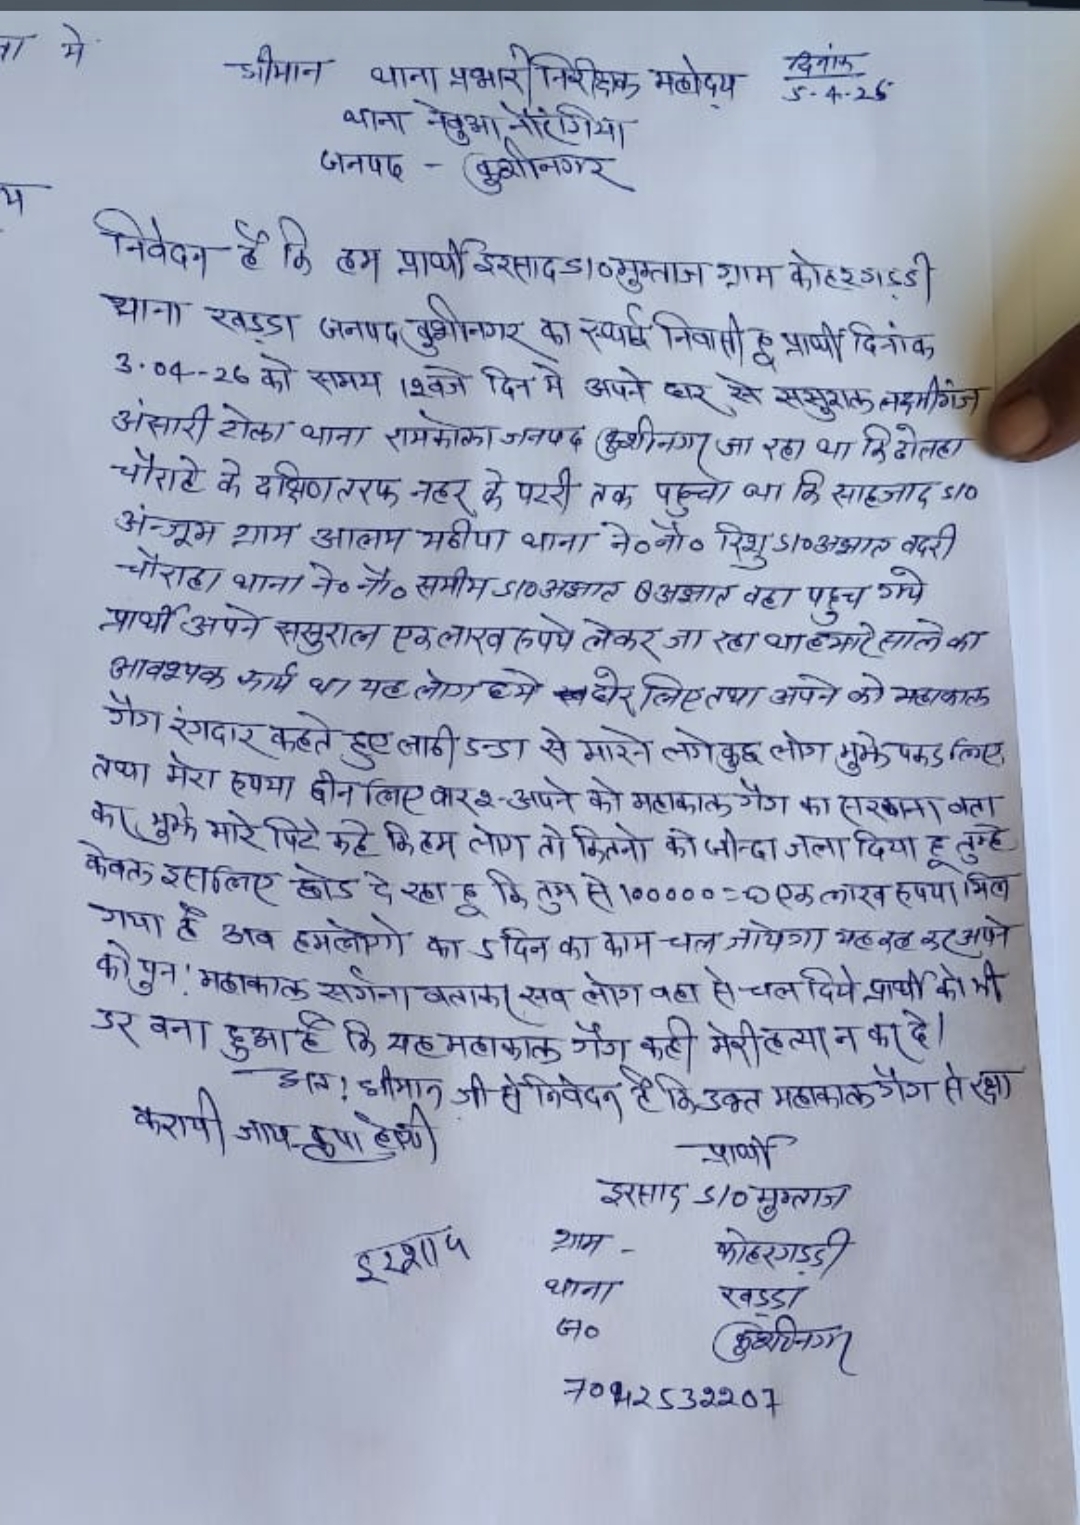 में
श्रीमान थाना प्रभारी निरीक्षक महोदय
दिनांक
5-4-26
थाना नेबुआ नौरंगिया
जनपद - कुशीनगर
निवेदन है कि हम प्रार्थी इरसाद S/O मुमताज ग्राम कोहरगड्डी
थाना खड्डा जनपद कुशीनगर का स्थाई निवासी हू प्रार्थी दिनांक
3-04-26 को समय 12 बजे दिन मे अपने घर से ससुराल लक्ष्मीगंज
अंसारी टोला थाना रामकोला जनपद कुशीनगर जा रहा था कि ढोलहा
चौराहे के दक्षिण तरफ नहर के पटरी तक पहुचा था कि साहजाद S/O
अंन्जूम ग्राम आलम मठीया थाना ने०नौ० रिशु S/O अज्ञात वदरी
चौराहा थाना ने० नौ० समीम S/O अज्ञात अज्ञात वहा पहुच गये
प्रार्थी अपने ससुराल एक लाख रुपये लेकर जा रहा था हमारे साले का
आवश्यक कार्य था यह लोग हमे घेर लिए तथा अपने को महाकाल
गैग रंगदार कहते हुए लाठी डन्डा से मारने लगे कुछ लोग मुझे पकड लिए
तथा मेरा रुपया छीन लिए वार २-अपने को महाकाल गैग का सरगना वता
कर मुझे मारे पिटे कहे कि हम लोग तो कितनो को जीन्दा जला दिया हू तुम्हे
केवल इसलिए छोड दे रहा हू कि तुम से 100000= एक लाख रुपया मिल
गया है अव हमलोगो का 5 दिन का काम चल जायेगा यह कह कर अपने
को पुनः महाकाल सर्गना वताकर सव लोग वहा से चल दिये प्रार्थी को भी
डर वना हुआ है कि यह महाकाल गैग कही मेरी हत्या न कर दे।
अतः श्रीमान जी से निवेदन है कि उक्त महाकाल गैग से रक्षा
करायी जाय कृपा होगी
प्रार्थी
इरसाद S/O मुमताज
इरशाद
ग्राम - कोहरगड्डी
थाना खड्डा
ज० कुशीनगर